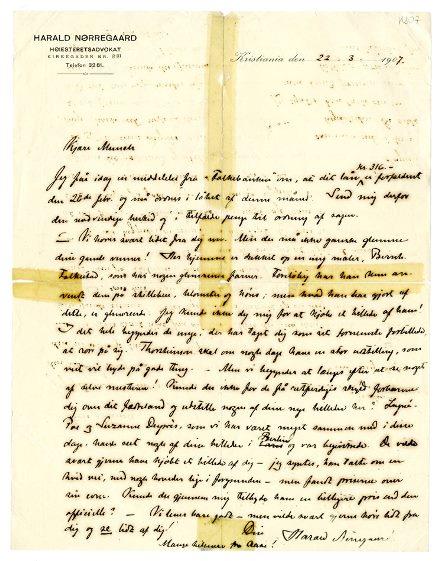 HARALD NØRREGAARD
HØIESTERETSADVOKAT
KIRKEGADEN NR.
Telefon
Kristiania den 22 - 3 - 1907.
Kjære Munch
Jeg fik idag en meddelelse fra Folkebanken om, at dit lån Kr 316.- er forfaldent
den 26de febr. og må ordnes i løbet af denne måned. Send mig derfor
den nødvendige og penge til ordning af sagen.
– Vi hører svært lidet fra dig nu. Men du må ikke ganske glemme
dine gamle venner! Her hjemme er dukket op en ung maler, Bernt
som har nogen farver. Foreløbig har han kun an-
vendt dem på blomster og høns; men hvad han har gjort af
dette, er glimrende. Jeg kunde ikke dy mig for at kjøbe et billede af ham!
I det hele begynder de unge, der har tagt dig som sit forbillede
at røre på sig. Thorolf skal om nogle dage have en stor udstilling, som
vist vil byde på gode ting. – Men vi begynder at længes efter at se noget
af selve mesteren! Kunde du ikke for de få retfærdiges skyld forbarme
dig over dit fædreland og udstille nogen af dine nye billeder her? Lugné-
Poe og Suzanne Desprès, som vi har været meget sammen med i disse
dage, havde set nogle af dine billeder i Berlin og var begeistrede. De vilde
svært gjerne have kjøbt et billede af dig – jeg syntes, han talte om en
hvid vei, med nogle hoveder lige i forgrunden – men fandt priserne over
sin evne. Kunde du gjennem mig tilbyde ham en billigere pris end den
officielle? – Vi lever bare godt – men vilde svært gjerne høre lidt fra
dig og se lidt af dig!
Din
Harald Nørregaard
Mange hilsener fra Aase!